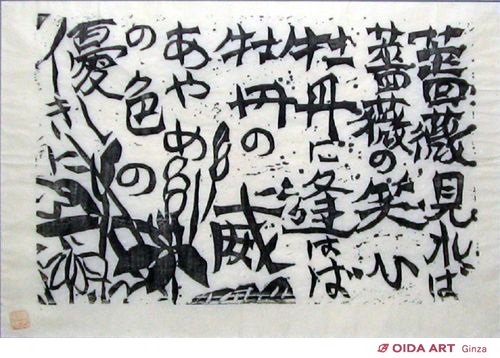 薔薇見れは
薔薇の笑ひ
牡丹に逢はば
牡丹の威
あやめ
の色の
優し
きに
OIDA ART Ginza